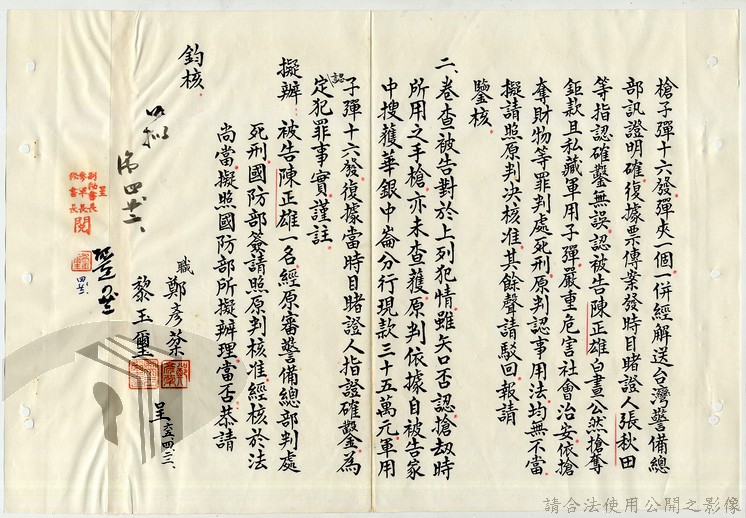 槍子彈十六發彈夾一個一併經解送台灣警備總
部訊證明確復據票傳案發時目賭證人張秋田
等指認確鑿無誤認被告陳正雄白晝公然搶奪
鉅款且私藏軍用子彈嚴重危害社會治安依搶
奪財物等罪判處死刑原判認事用法均無不當
擬請照原判決核准其餘聲請駁回報請
鑒核
二、卷查被告對於上列犯情雖矢口否認搶劫時
所用之手槍亦未查獲原判依據自被告家
中搜獲華銀中崙分行現款三十五萬元軍用
子彈十六發復據當時目賭證人指證確鑿為
認定犯罪事實謹註
擬辦 被告陳正雄一名經原審警備總部判處
死刑國防部簽請照原判核准經核於法
尚當擬照國防部所擬辦理當否恭請
鈞核
職 鄭彥棻
黎玉璽 呈
如擬
呈
副秘書長
參軍長
秘書長
閱
請合法使用公開之影像